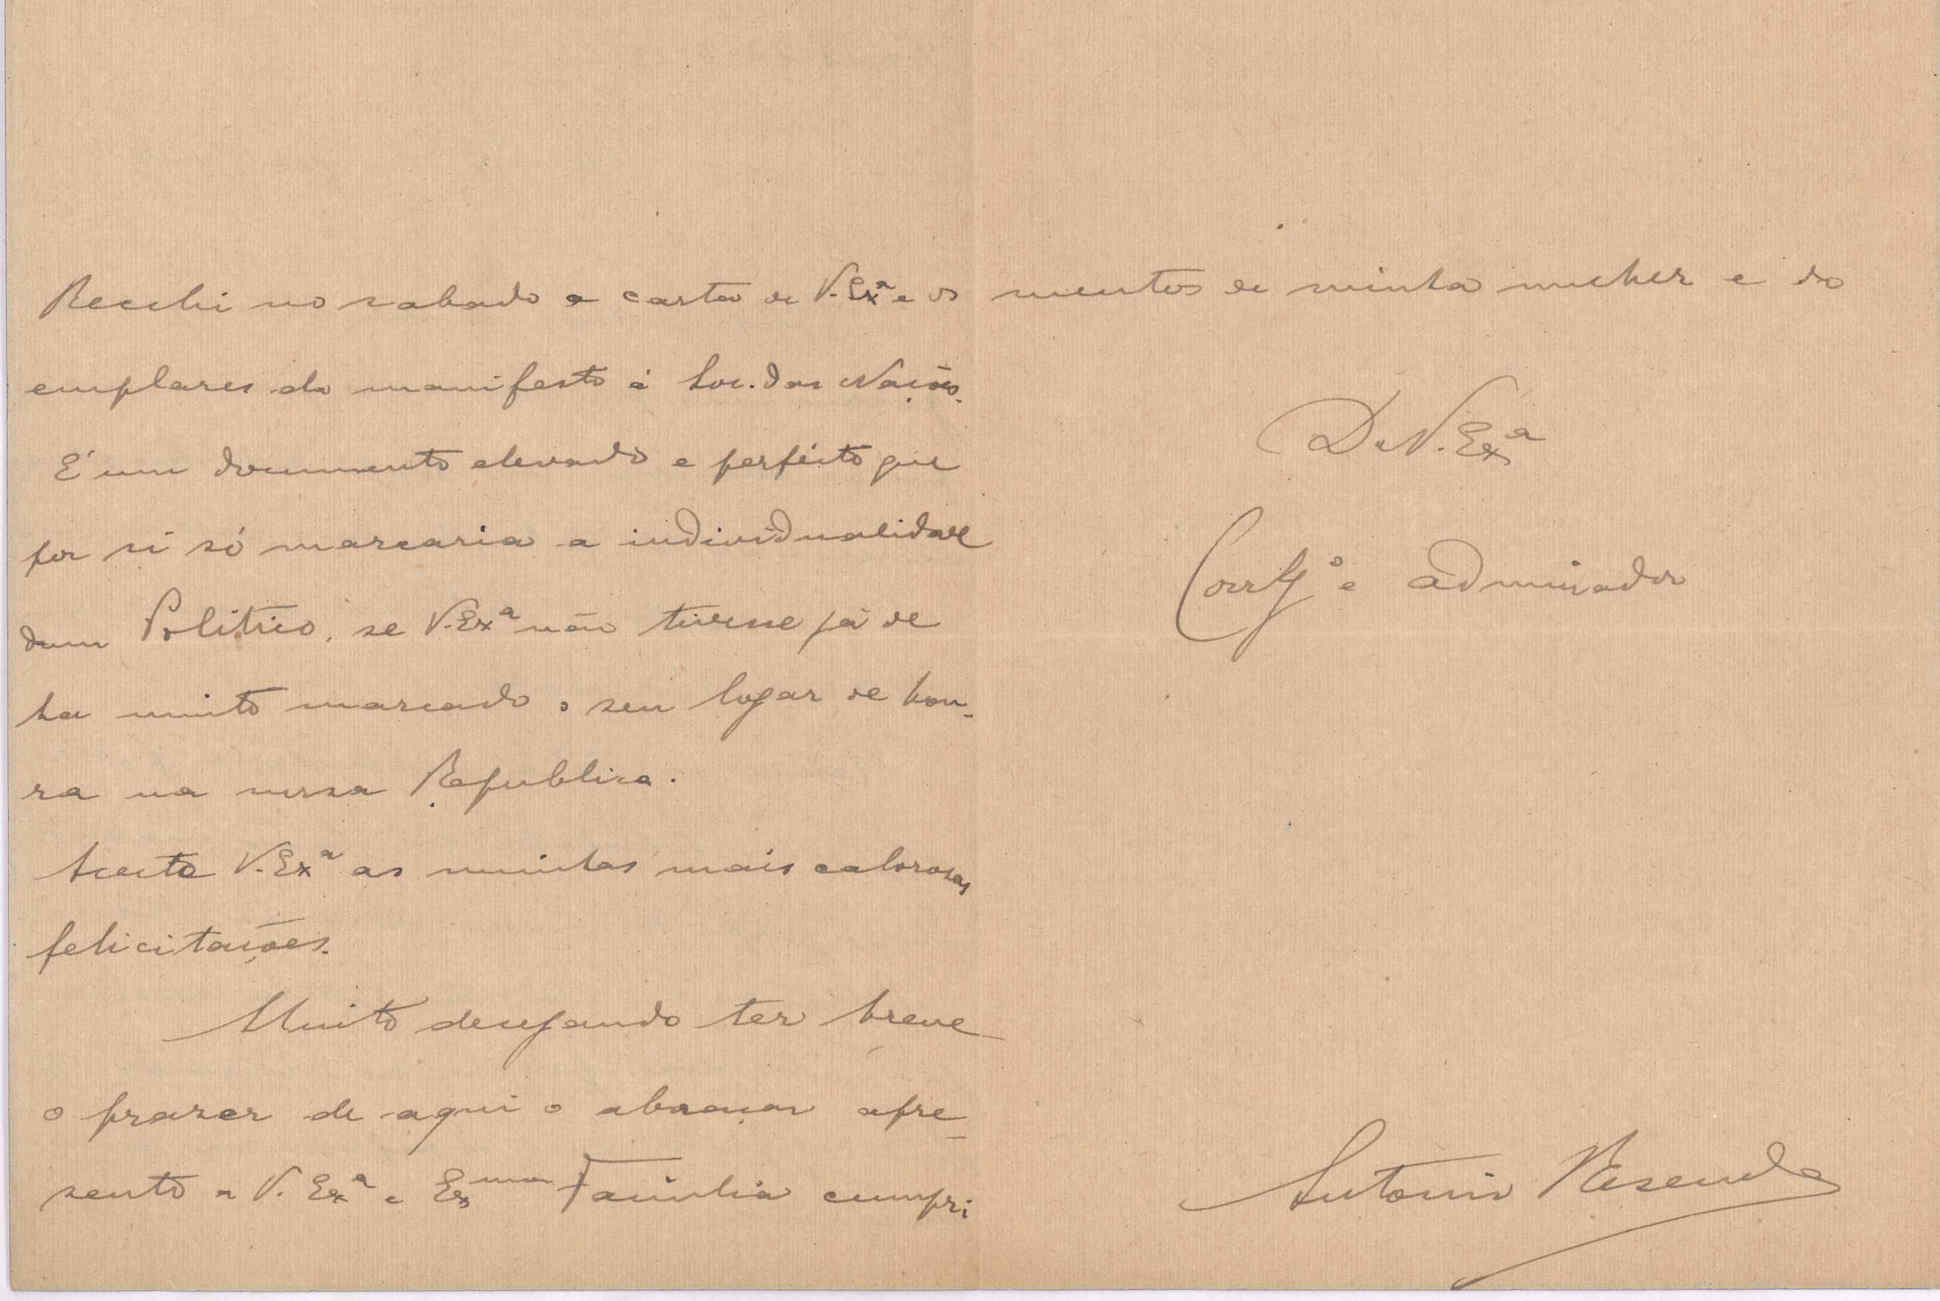 Recebi no sabado a carta de V. Exª e os
emplares do manifesto á Soc. das Nações.
É um documento elevado e perfeito que
por si só marcaria a individualidade
dum Politico, se V. Exª não tivesse já de
ha muito marcado o seu logar de hon-
ra na nossa Republica.
Aceite V. Exª as minhas mais calorosas
felicitações.
Muito desejando ter breve
o prazer de aqui o abraçar apre-
sento a V. Exª e Exma Familia cumpri
mentos de minha mulher e do
De V. Exª
Corrgº e admirador
Antonio Resende